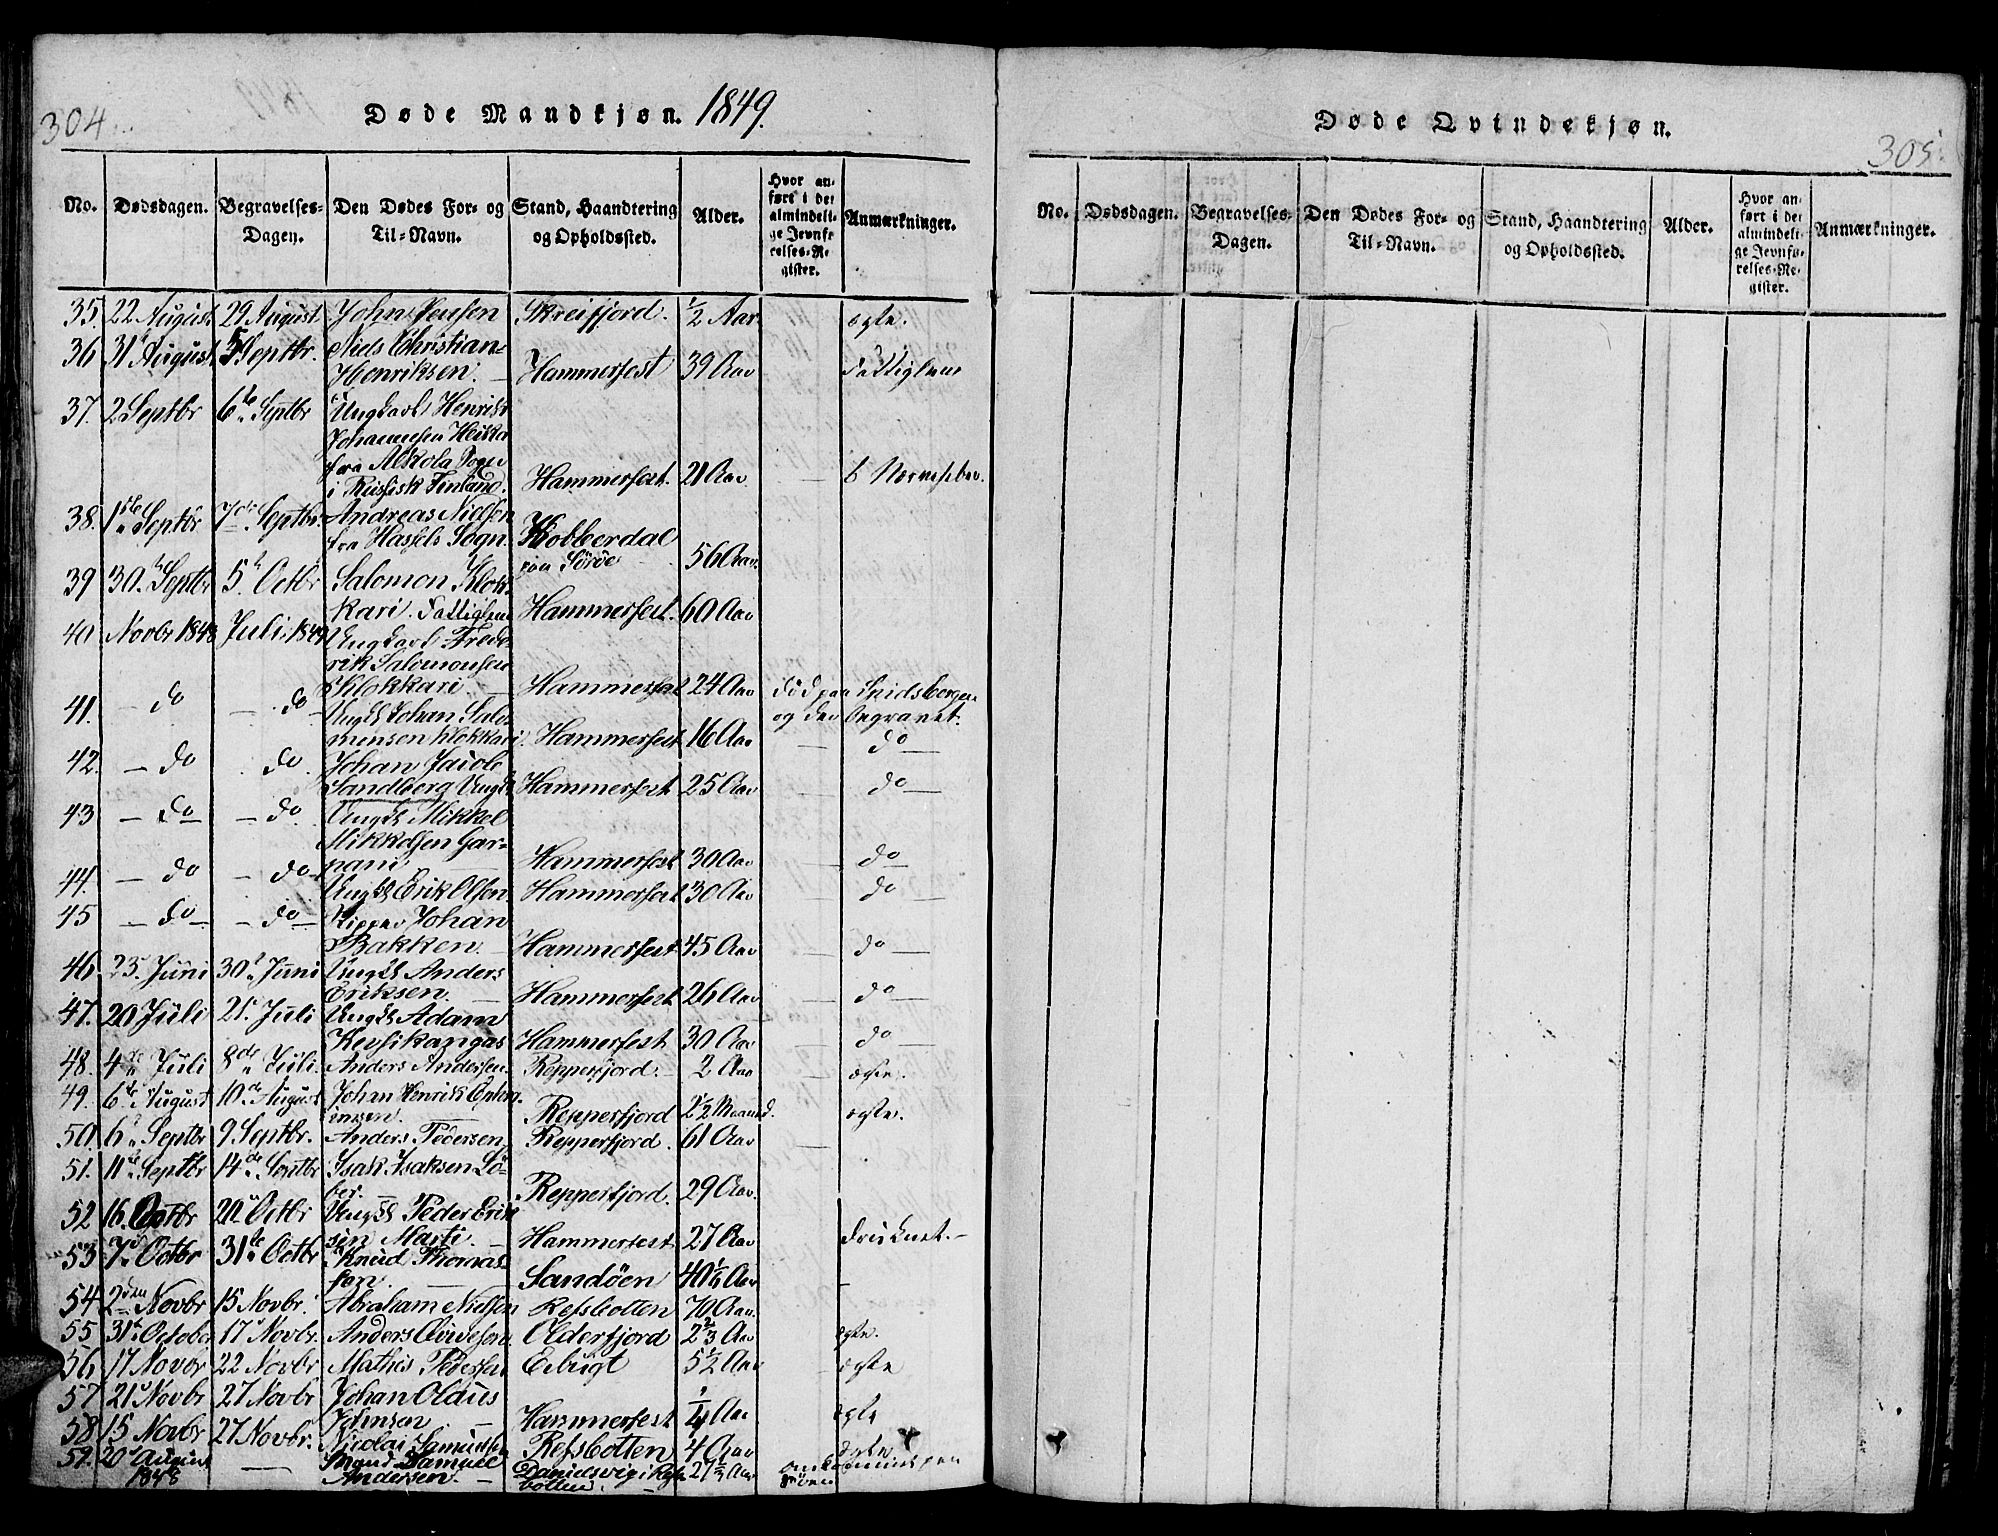 304
Døde Mandkjøn. 1849.
No. Dødsdagen. Begravelses-Dagen. Den Dødes For- og Til-Navn. Stand, Haandtering og Opholdssted. Alder. Hvor anført i det almindelige Jevnførelses-Register. Anmærkninger.
35. 22 August 29 August John Jensen Skreifjord. 1/2 Aar ægte.
36 31 August 5 Septbr. Niels Christian
Henriksen. Hammerfest 39 Aar Fattiglem
37. 2 Septbr 6te Septbr Ungkarl Henrik
Johannesen Heika
fra Alkola Sogn
i Russisk Finland. Hammerfest. 21 Aar
38. 1ste Septbr 7de Septbr. Andreas Nielsen
fra Hassels Sogn. Kobberdal
paa Söröe 56 Aar
39 30. Septbr 5. Octbr Salomon Klok-
kari. Fattiglem Hammerfest. 60 Aar
40. Novbr 1848 Juli 1849 Ungkarl Frede-
rik Salomonsen
Klokkari. Hammerfest 24 Aar død paa Spidsbergen
og der begravet.
41. do do Ungk Johan Salo-
monsen Klokkari. Hammerfest 16 Aar do
42. do do. Johan Jacob
Sandberg Ungk Hammerfest 25 Aar do
43 do do. Ungk Mikkel
Mikkelsen Gar-
pani Hammerfest 30 Aar do
44. do do Ungk Erik Olsen. Hammerfest 30 Aar do
45 do do Skipper Johan
Bakken. Hammerfest 45 Aar do
46. 23. Juni 30 Juni Ungk Anders
Eriksen. Hammerfest 26 Aar do
47. 20 Juli 21. Juli Ungk Adam
Kersikangas Hammerfest 30 Aar do
48. 4de Juli 8de Juli. Anders Andersen. Repperfjord. 2 Aar ægte.
49. 6te August 10de August Johan Henrik
Repperfjord 2 1/2 Maaned. ægte.
50. 6 Septbr 9 Septbr. Anders Pedersen Repperfjord. 61 Aar
51. 11te Septbr 14de Septbr Isak Isaksen Sö-
ber. Repperfjord. 29 Aar.
52 16. Octbr 20 Octbr Ungk Peder Erik
sen Marti. Hammerfest 27 Aar druknet.
53 7 Octbr 31te Octbr Knud Thomas-
sen. Sandöen 40 1/2 Aar
54 2den Novbr 15 Novbr. Abraham Nielsen Refsbotten 70 Aar.
55 31te October 17 Novbr. Anders Olderfjord 2 2/3 Aar ægte.
56 17 Novbr 22 Novbr Mathis Pedersen 5 1/2 Aar ægte
57 21 Novbr 27 Novbr Johan Olaus
Johnsen Hammerfest 1/4 Aar ægte
58 15 Novbr 27 Novbr. Nicolai Samuelsen Refsbotten 4 Aar ægte
59. 20 August
1848 Samuel
Andersen. Danielsvig i Refs-
botten. omkommet paa
søen
Døde Qvindekjøn.
305
No. Dødsdagen. Begravelses-Dagen. Den Dødes For- og Til-Navn. Stand, Haandtering og Opholdssted. Alder. Hvor anført i det almindelige Jevnførelses-Register. Anmærkninger.